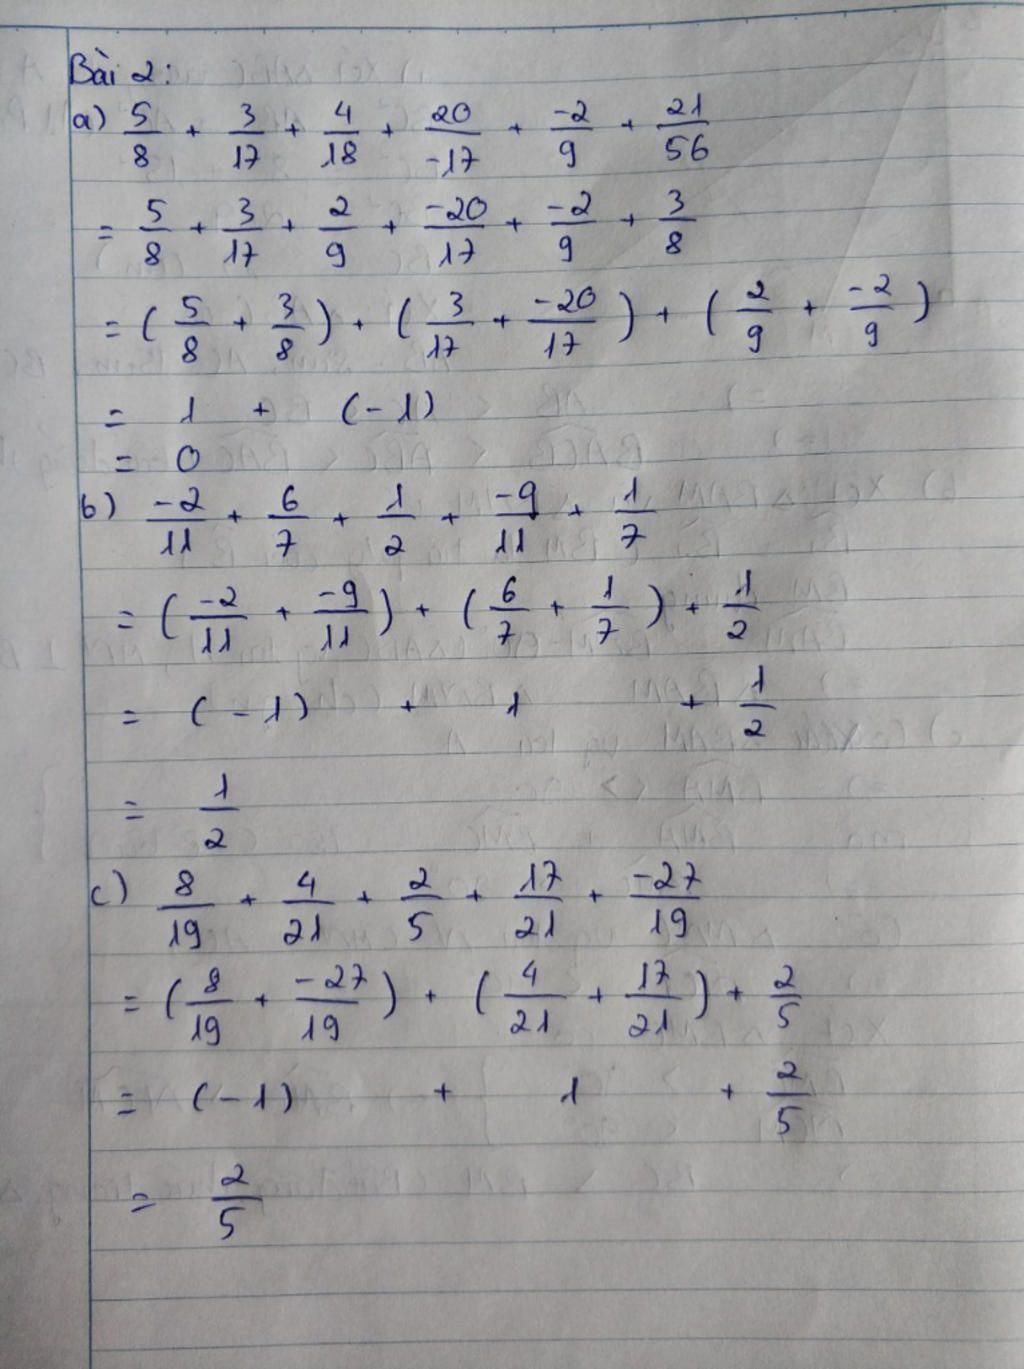 Bài 2:
a) 5/8 + 3/17 + 4/18 + 20/-17 + -2/9 + 21/56
= 5/8 + 3/17 + 2/9 + -20/17 + -2/9 + 3/8
= (5/8 + 3/8) + (3/17 + -20/17) + (2/9 + -2/9)
= 1 + (-1)
= 0
b) -2/11 + 6/7 + 1/2 + -9/11 + 1/7
= (-2/11 + -9/11) + (6/7 + 1/7) + 1/2
= (-1) + 1 + 1/2
= 1/2
c) 8/19 + 4/21 + 2/5 + 17/21 + -27/19
= (8/19 + -27/19) + (4/21 + 17/21) + 2/5
= (-1) + 1 + 2/5
= 2/5